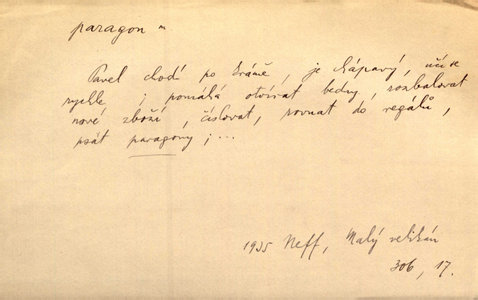 paragon m
Pavel chodí po krámě, je chápavý, učí se
rychle ; pomáhá otvírat bedny, rozbalovat
nové zboží, číslovat, rovnat do regálů,
psát paragony ; ...
1935 Neff, Malý velikán
306, 17.